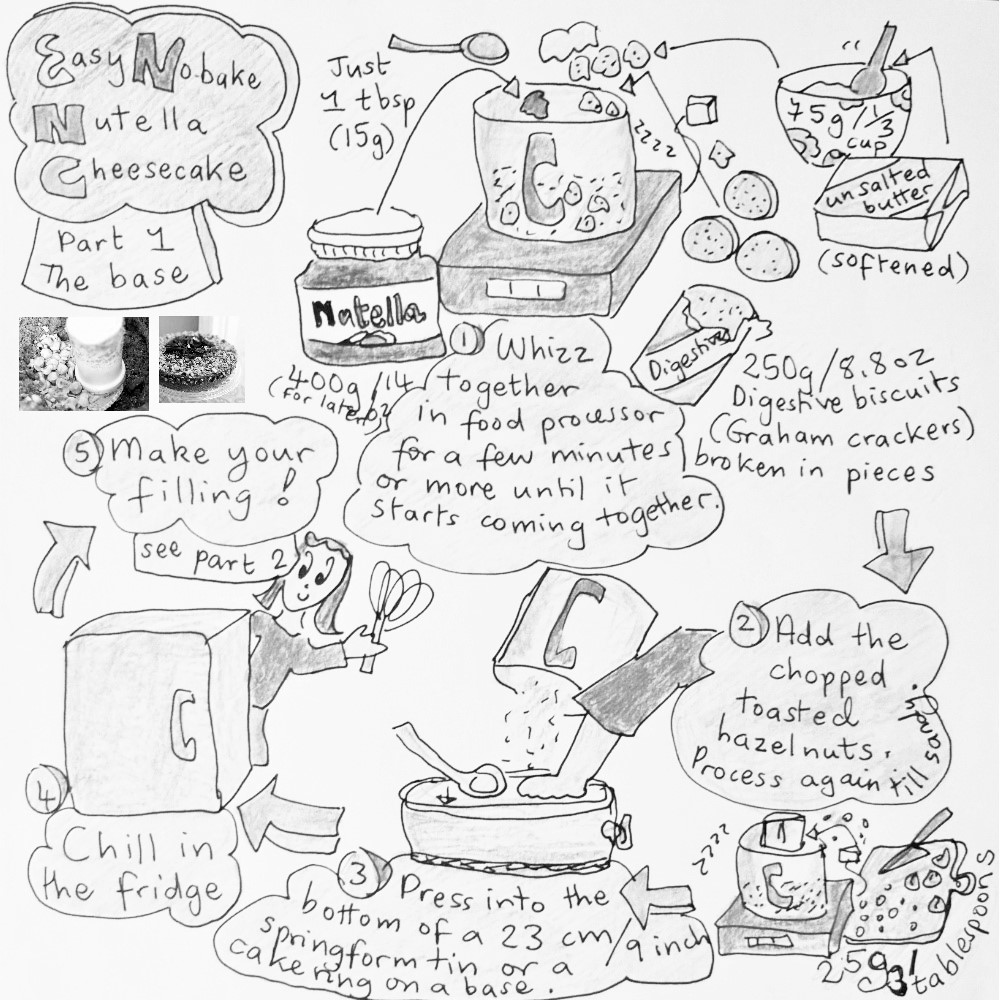 Easy No.bake
Nutella
Cheesecake
Part 1
The base
Just
1 tbsp
(15g)
zzzz
75g/1/3
cup
unsalted
butter
(softened)
Nutella
400g/14
(for later) oz
Digestives
250g/8.8oz
Digestive biscuits
(Graham crackers)
broken in pieces
1 Whizz
together
in food processor
for a few minutes
or more until it
starts coming together.
2 Add the
chopped
toasted
hazelnuts.
Process again till sandy.
zzzz
25g/
3 tablespoons
3 Press into the
bottom of a 23 cm/9 inch
springform tin or a
cake ring on a base.
4
Chill in
the fridge
5 Make your
filling!
see part 2